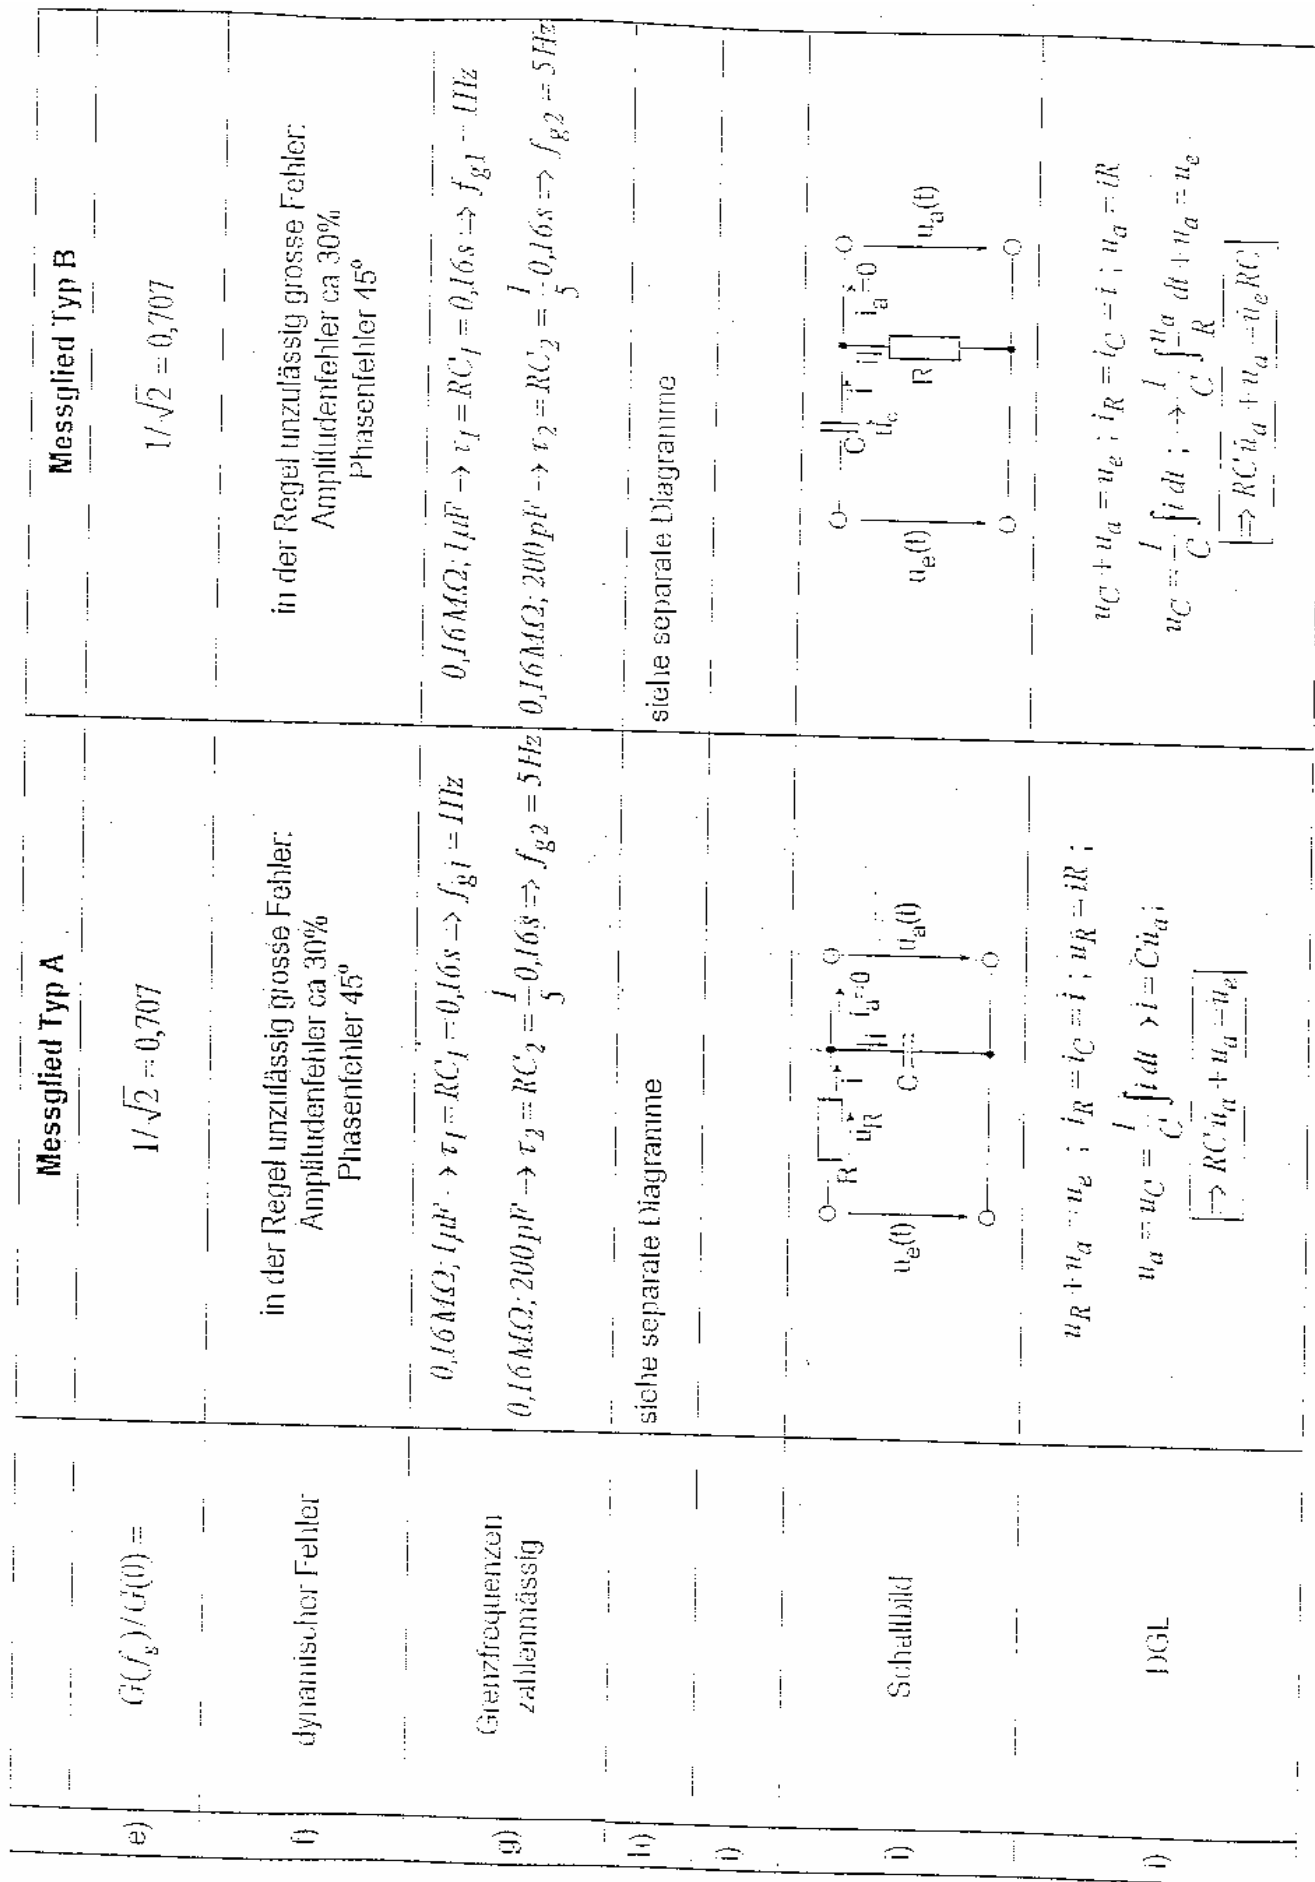 Messglied Typ A
Messglied Typ B
e)
G(f_g)/G(0) =
1/√2 = 0,707
1/√2 = 0,707
f)
dynamischer Fehler
in der Regel unzulässig grosse Fehler:
Amplitudenfehler ca 30%
Phasenfehler 45°
in der Regel unzulässig grosse Fehler:
Amplitudenfehler ca 30%
Phasenfehler 45°
g)
Grenzfrequenzen
zahlenmässig
0,16MΩ; 1µF → τ_1 = RC_1 = 0,16s ⇒ f_g1 = 1Hz
0,16MΩ; 200pF → τ_2 = RC_2 = 1/5 0,16s ⇒ f_g2 = 5Hz
0,16MΩ; 1µF → τ_1 = RC_1 = 0,16s ⇒ f_g1 = 1Hz
0,16MΩ; 200pF → τ_2 = RC_2 = 1/5 0,16s ⇒ f_g2 = 5Hz
h)
siehe separate Diagramme
siehe separate Diagramme
i)
i)
Schaltbild
R
u_R
i
i_a=0
C
u_e(t)
u_a(t)
C
u_c
i
i_a=0
R
u_e(t)
u_a(t)
i)
DGL
u_R + u_a = u_e ; i_R = i_C = i ; u_R = iR ;
u_a = u_C = 1/C ∫i dt → i = Cu̇_a ;
⇒ RCu̇_a + u_a = u_e
u_C + u_a = u_e ; i_R = i_C = i ; u_a = iR
u_C = 1/C ∫i dt ; → 1/C ∫ u_a/R dt + u_a = u_e
⇒ RCu̇_a + u_a = u̇_e RC